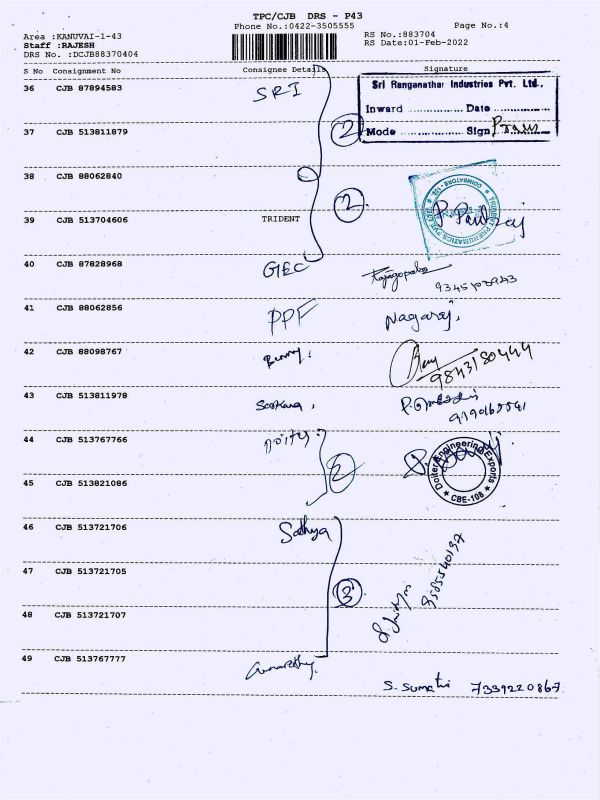 TPC/CJB DRS - P43
Phone No.:0422-3505555 Page No.:4
Area :KANUVAI-1-43 RS No.:883704
Staff :RAJESH RS Date:01-Feb-2022
DRS No. :DCJB88370404
S No Consignment No Consignee Details Signature
36 CJB 87894583 SRI
Sri Ranganathar Industries Pvt. Ltd.,
Inward .............. Date ..............
37 CJB 513811879 2 Mode .............. Sign
38 CJB 88062840 2
39 CJB 513704606 TRIDENT
TRIDENT PNEUMATICS PVT LTD COIMBATORE
40 CJB 87828968 GEC
41 CJB 88062856 PPF Nagaraj,
42 CJB 88098767 9843180444
43 CJB 513811978
44 CJB 513767766
Doiter Engineering Exports
CBE-108
45 CJB 513821086 2
46 CJB 513721706 Sathya
47 CJB 513721705
48 CJB 513721707 3
49 CJB 513767777
S. Sumathi 7339220867